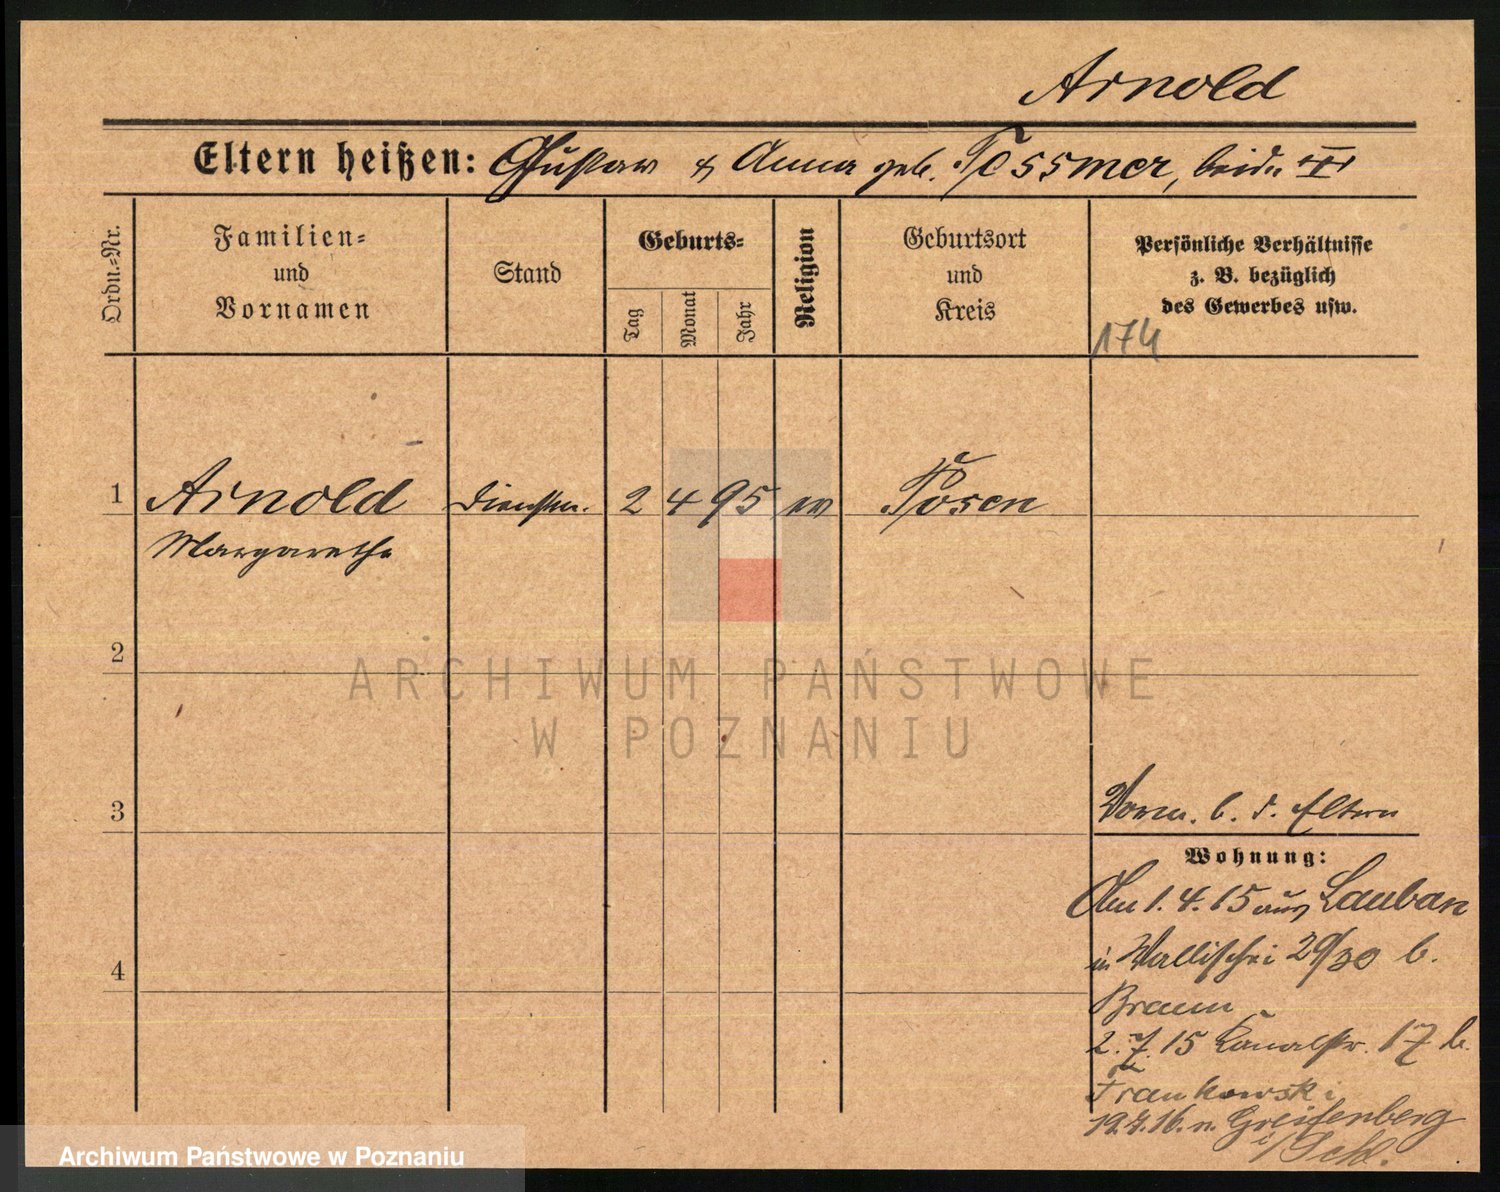 Arnold
Eltern heißen: Gustav & Anna geb. Possmer, beide
Ordn.-Nr.
Familien-
und
Vornamen
Stand
Geburts-
Tag
Monat
Jahr
Religion
Geburtsort
und
Kreis
Persönliche Verhältnisse
z. B. bezüglich
des Gewerbes usw.
174
1 Arnold Dienstm. 2 4 95 Posen
Margarethe
2
ARCHIWUM PAŃSTWOWE
W POZNANIU
3
Vorm. b. d. Eltern
Wohnung:
Am 1. 4. 15 aus Lauban
in Wallischei 29/30 b.
4
Braun
2. 7. 15 Kanalstr. 17 b.
Frankowski
19.7.16. n. Greifenberg
i/Schl.
Archiwum Państwowe w Poznaniu